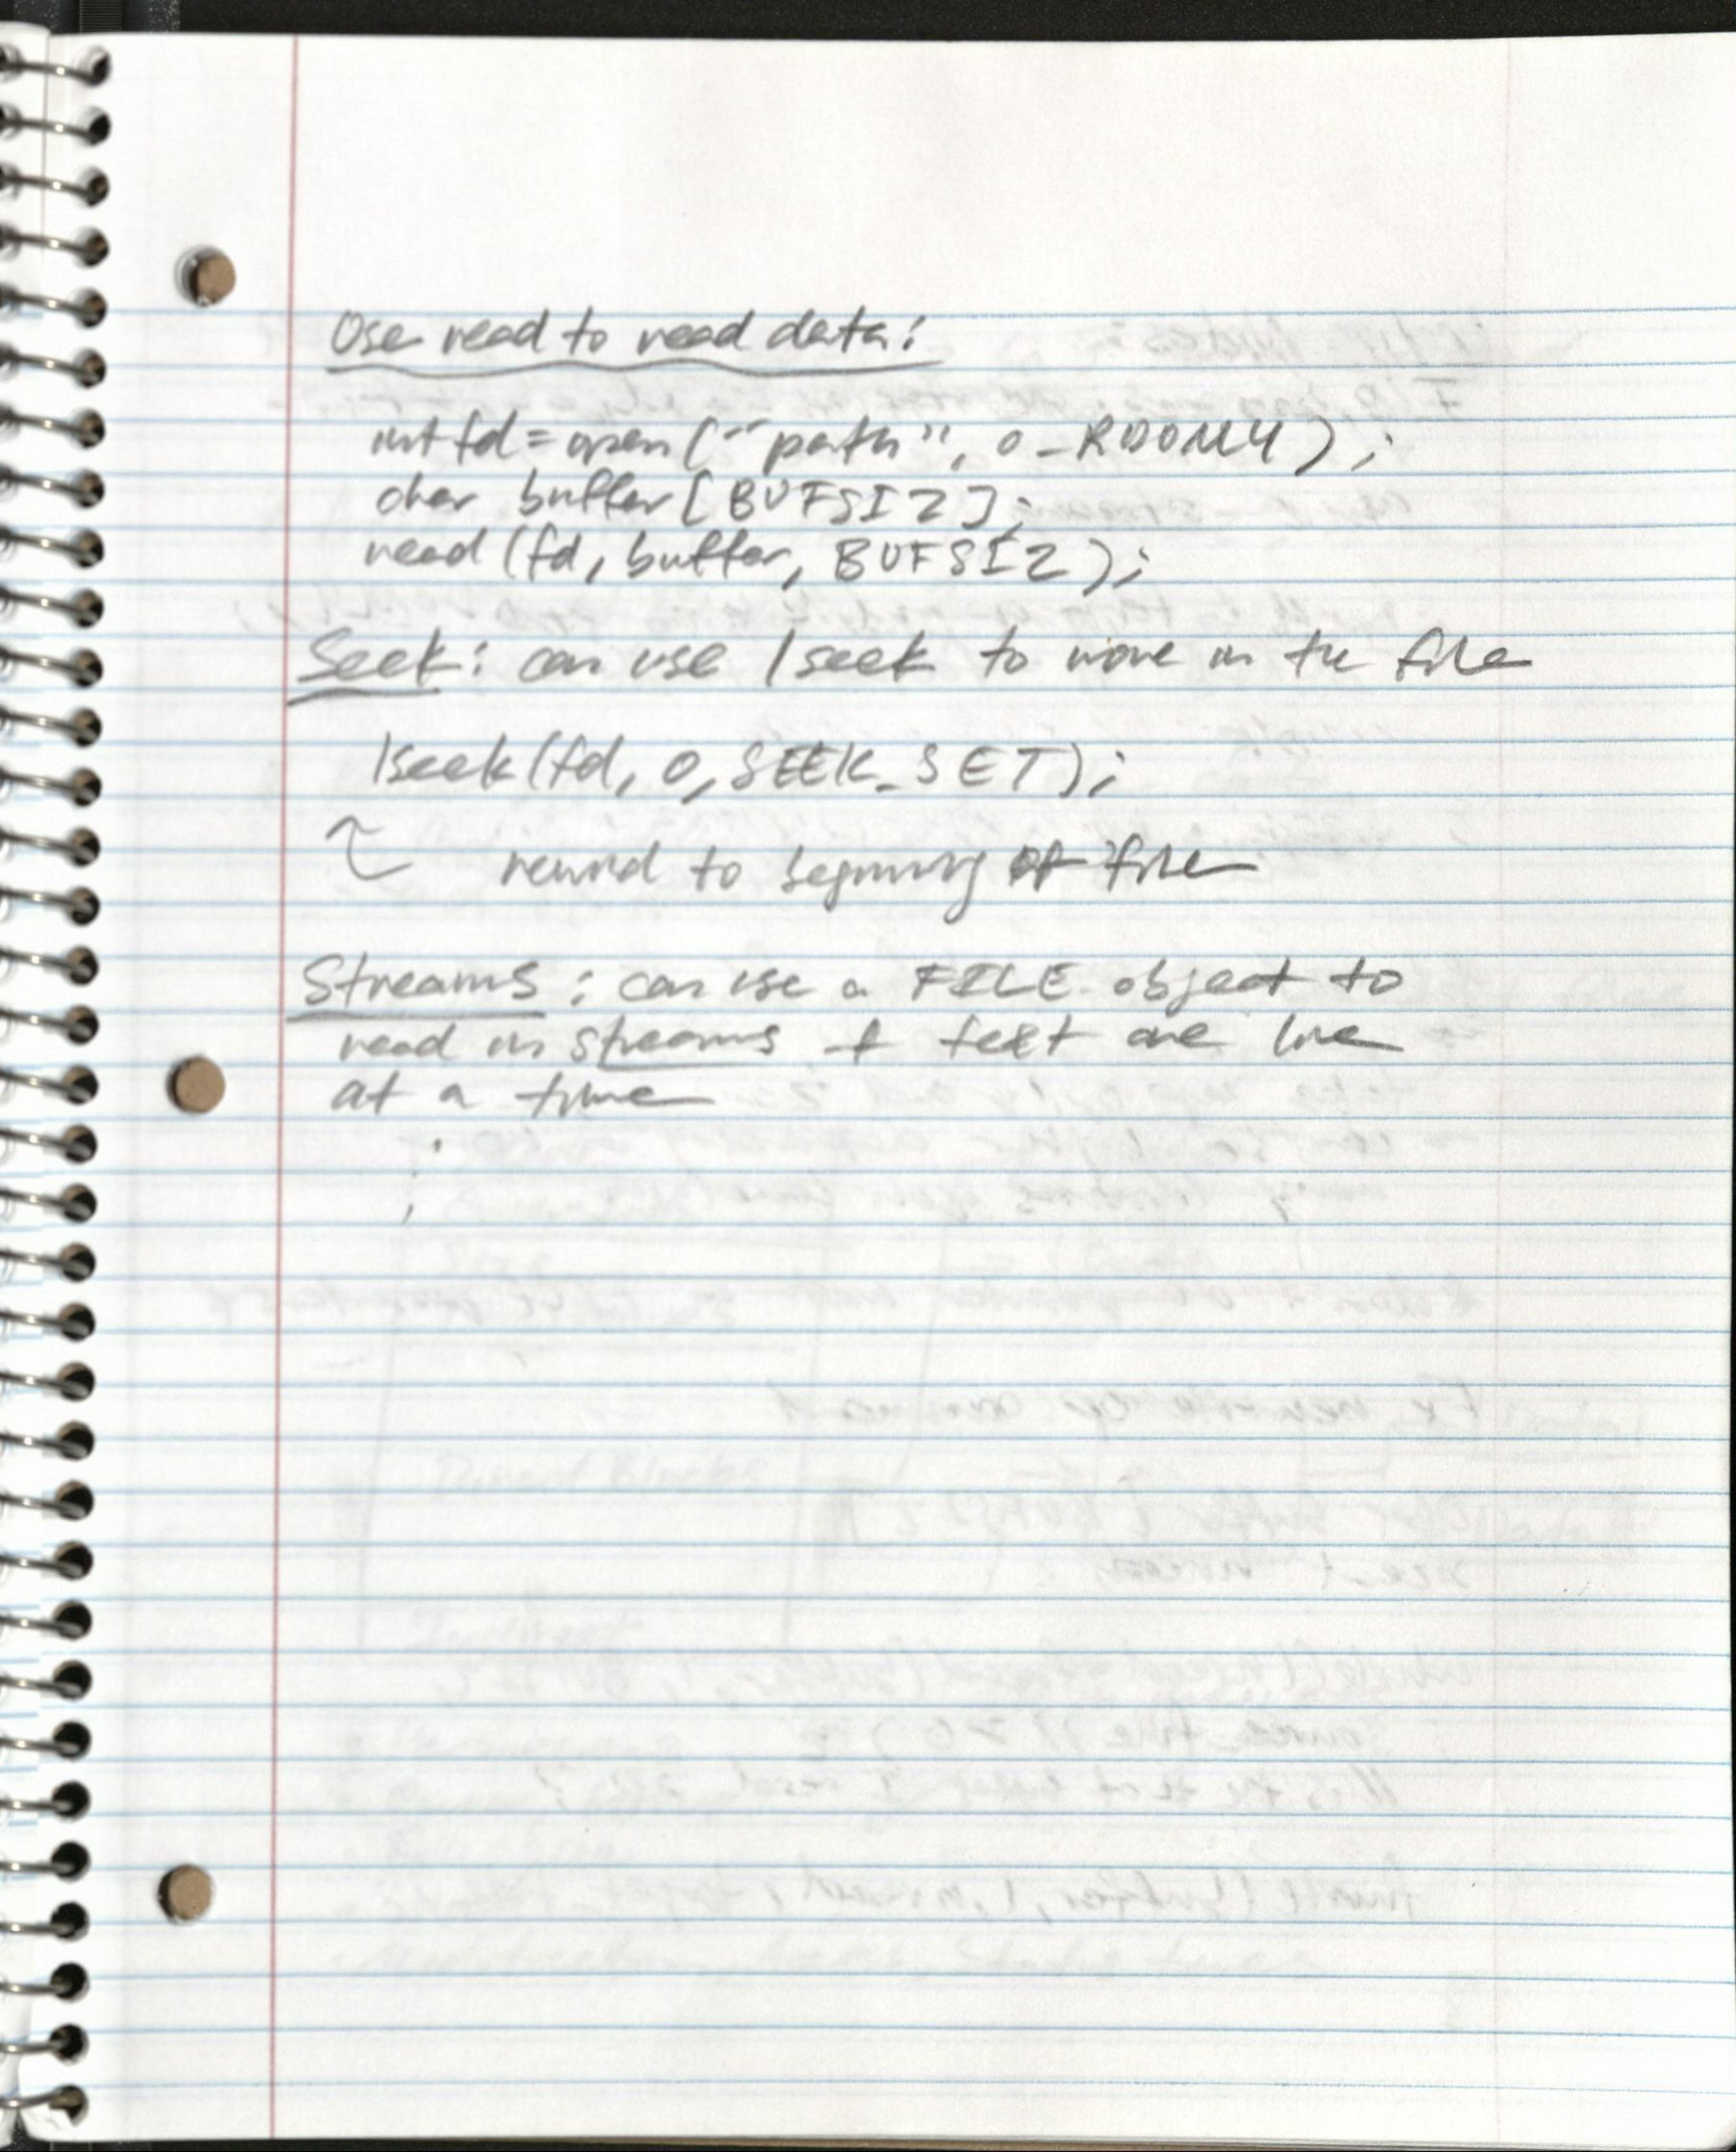 Use read to read data:
int fd = open("path", O_RDONLY);
char buffer[BUFSIZ];
read(fd, buffer, BUFSIZ);
Seek: can use lseek to move in the file
lseek(fd, 0, SEEK_SET);
rewind to beginning of file
Streams: can use a FILE object to
read in streams of text one line
at a time